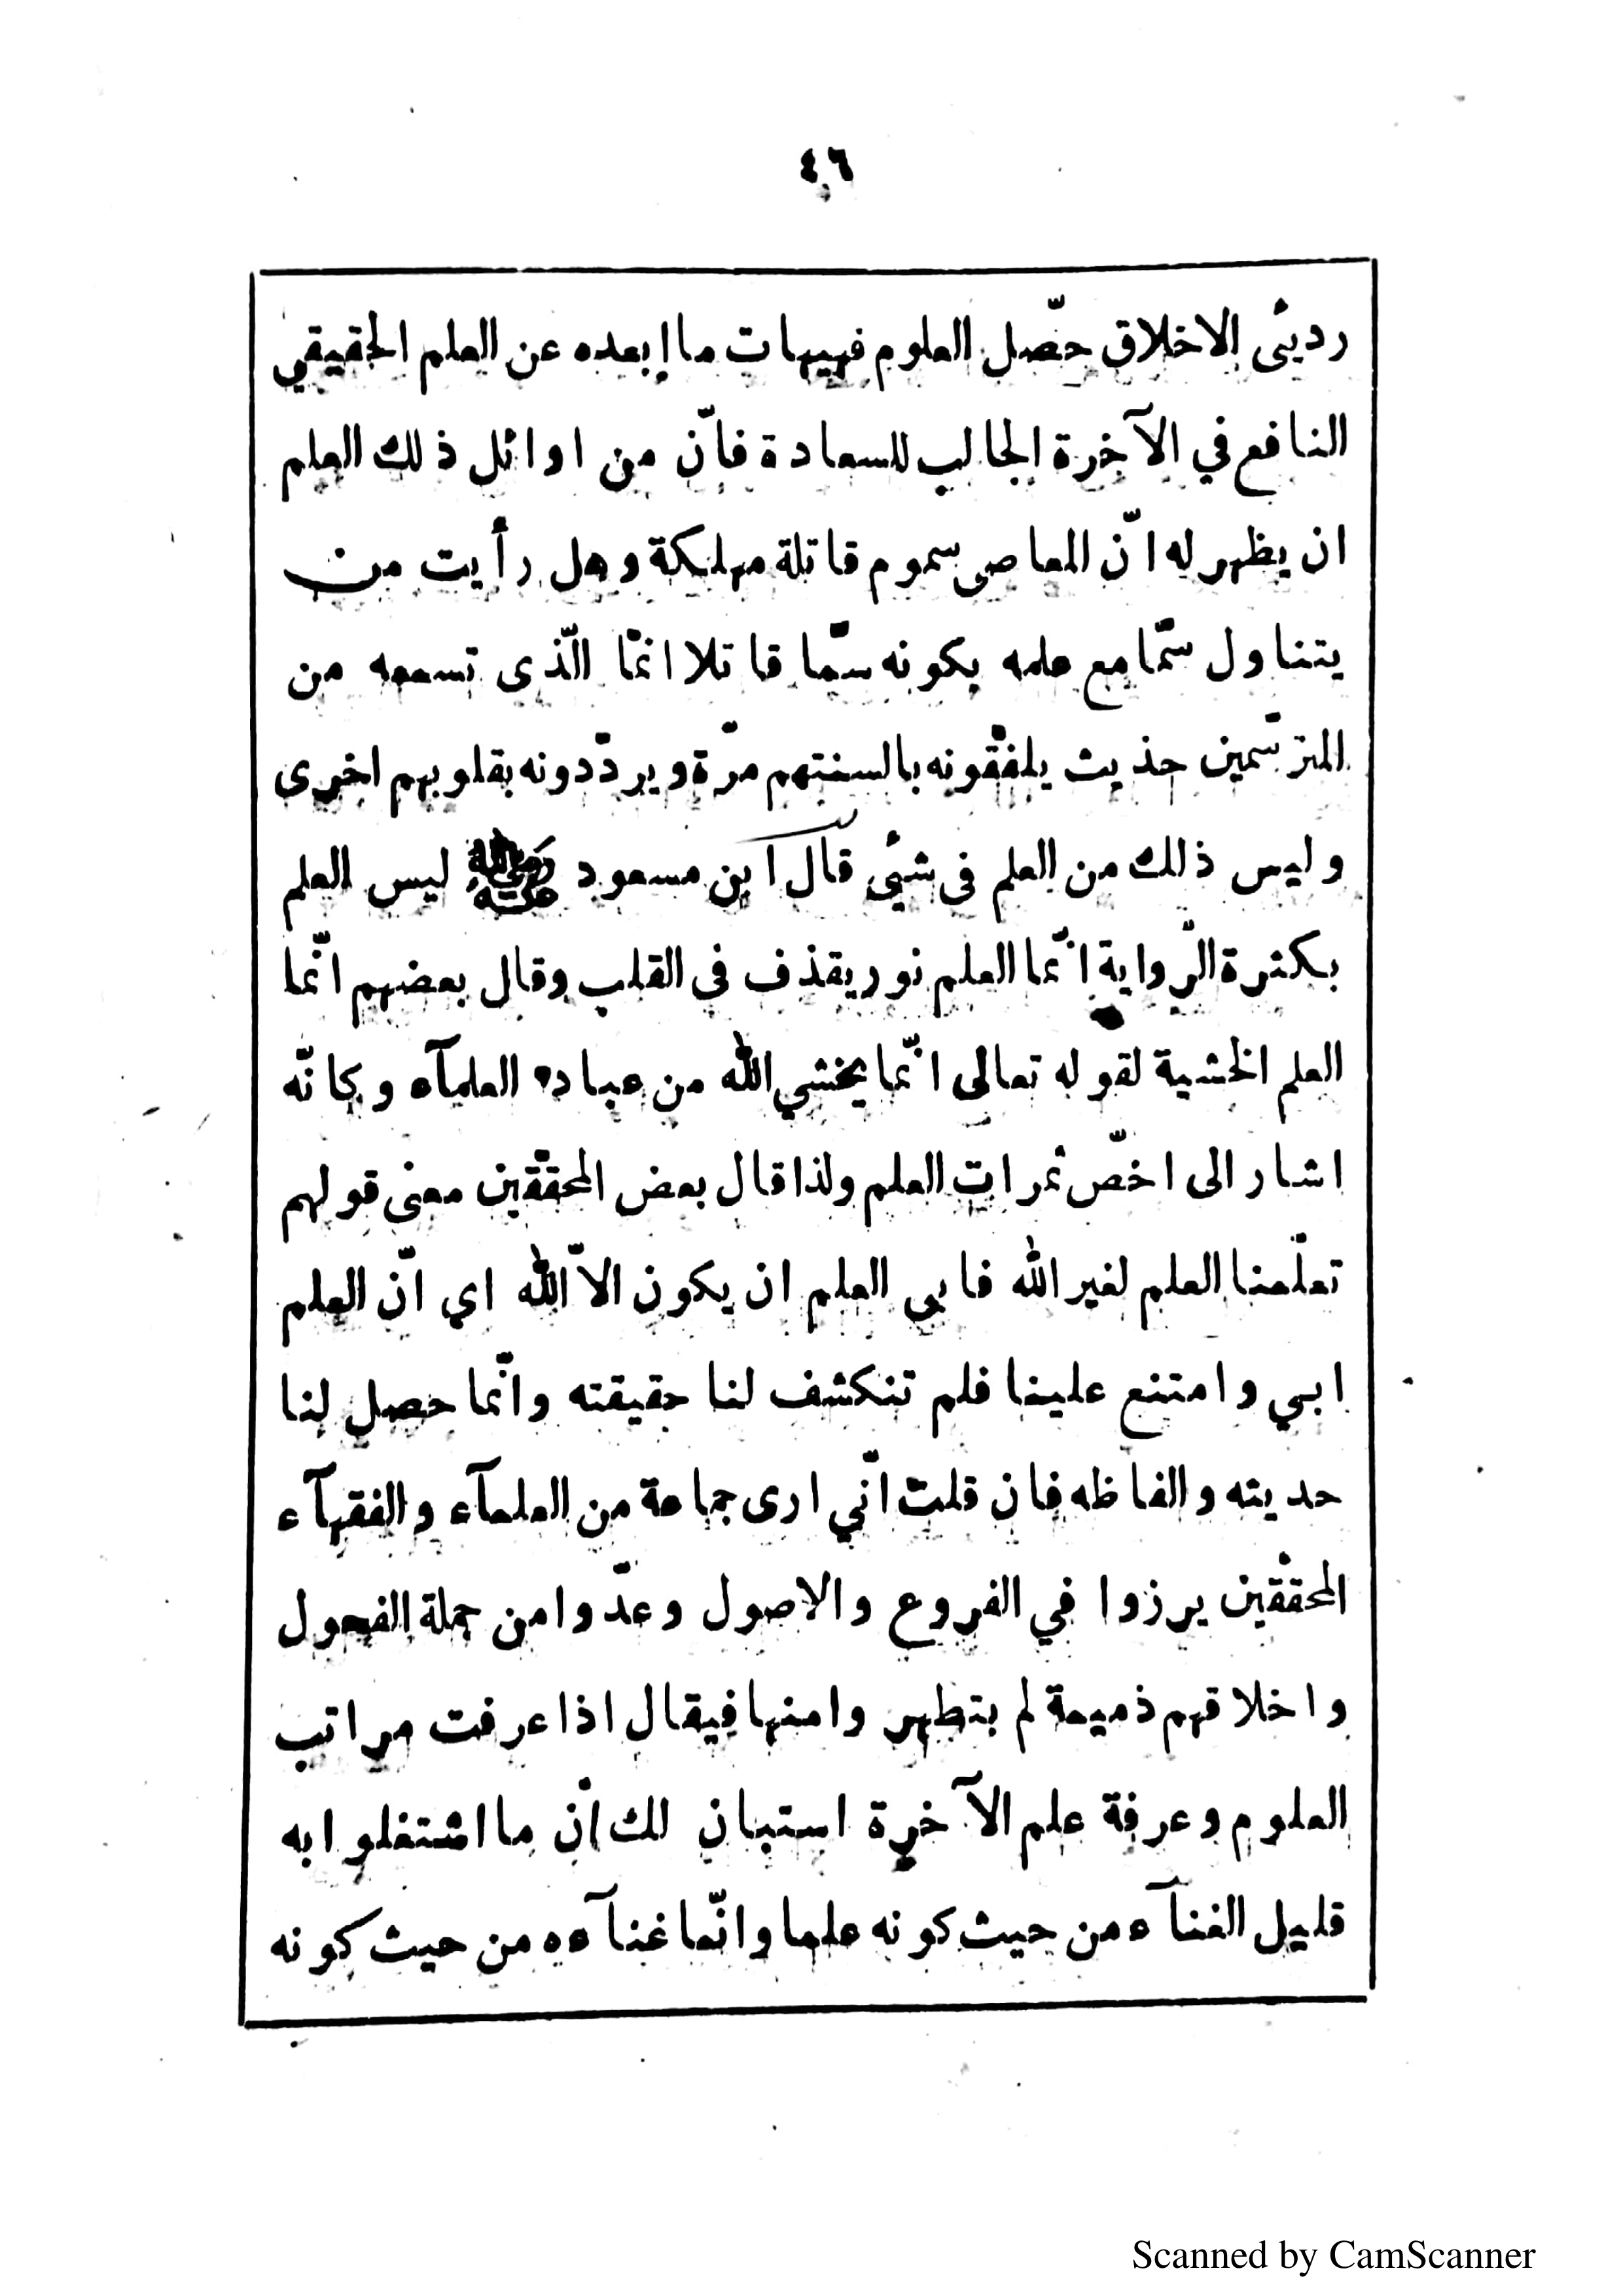 ٤٦
رديئى الاخلاق حصّل العلوم فهيهات ما ابعده عن العلم الحقيقي
النافع في الآخرة الجالب للسعادة فانّ من اوائل ذلك العلم
ان يظهر له انّ المعاصى سموم قاتلة مهلكة وهل رأيت من
يتناول سمّا مع علمه بكونه سمّا قاتلا انمّا الّذى تسمعه من
المترسّمين حذيث يلفّقونه بالسنتهم مرّة ويردّدونه بقلوبهم اخرى
وليس ذلك من العلم فى شيئ قال ابن مسعود رضي الله عنه ليس العلم
بكثرة الرّواية انّما العلم نور يقذف فى القلب وقال بعضهم انّما
العلم الخشية لقوله تعالى انّما يخشي الله من عباده العلمآء وكانّه
اشار الى اخصّ ثمرات العلم ولذا قال بعض المحقّقين معنى قولهم
تعلّمنا العلم لغير الله فابى العلم ان يكون الاّ الله اي انّ العلم
ابي وامتنع علينا فلم تنكشف لنا حقيقته وانّما حصل لنا
حديثه والفاظه فان قلت انّي ارى جماعة من العلمآء والفقهآء
المحقّقين يرزوا في الفروع والاصول وعدّوا من جملة الفحول
واخلاقهم ذميمة لم بتطهروا منها فيقال اذا عرفت مراتب
العلوم وعرفة علم الآخرة استبان لك انّ ما اشتغلوا به
قليل الغنآء من حيث كونه علما وانّما غنآءه من حيث كونه
Scanned by CamScanner